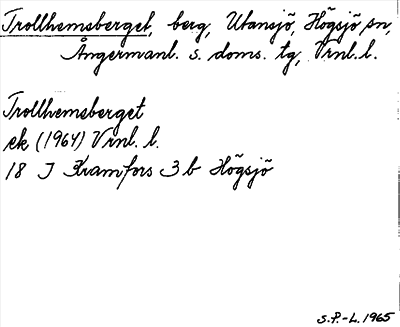 Trollhemsberget, berg, Utansjö, Högsjö sn,
Ångermanl. s. doms. tg, Vrnl. l.
Trollhemsberget
ek (1964) Vrnl. l.
18 J Kramfors 3 b Högsjö
S.P.-L. 1965